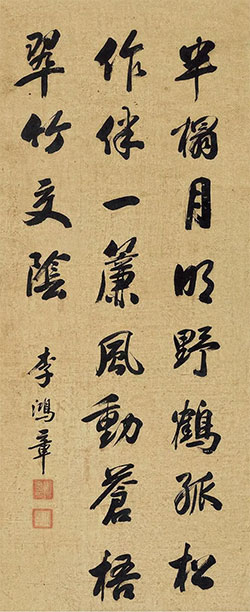 半榻月明野鶴孤松
作伴一簾風動蒼梧
翠竹交陰
李鴻章